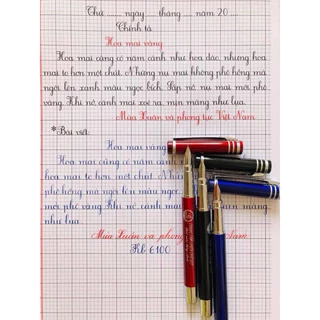 Thứ ...... ngày ..... tháng ..... năm 20 ....
Chính tả
Hoa mai vàng
Hoa mai cũng có năm cánh như hoa đào, nhưng hoa
mai to hơn một chút. Những nụ mai không phô hồng mà
ngời lên xanh màu ngọc bích. Sắp nở, nụ mai mới phô
vàng. Khi nở, cánh mai xoè ra mịn màng như lụa.
Mùa Xuân và phong tục Việt Nam
*Bài viết:
Hoa mai vàng
Hoa mai cũng có năm cánh
hoa mai to hơn một chút. Những nụ
phô hồng mà ngời lên màu ngọc
mới phô vàng. Khi nở, cánh mai mịn màng
như lụa.
Mùa Xuân và phong Nam